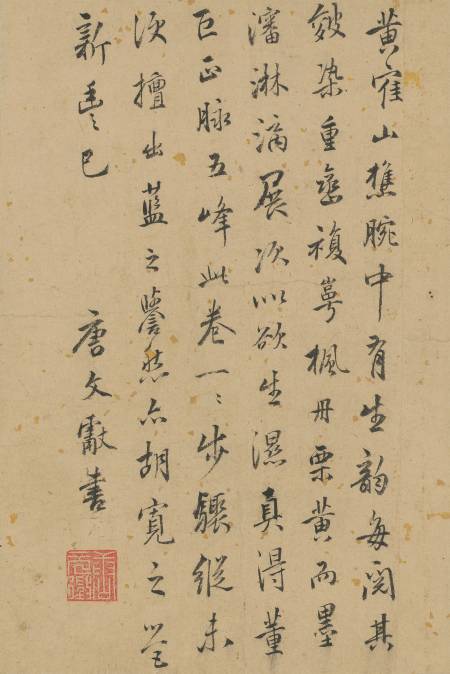 黄寉山樵腕中有生韵每閱其
皴染重巒複崿楓丹栗黄而墨
瀋淋漓展次似欲生濕真得董
巨正脉五峰此卷一〻步驟縱未
須擅出藍之譽然亦胡寛之營
新豐已
唐文獻書